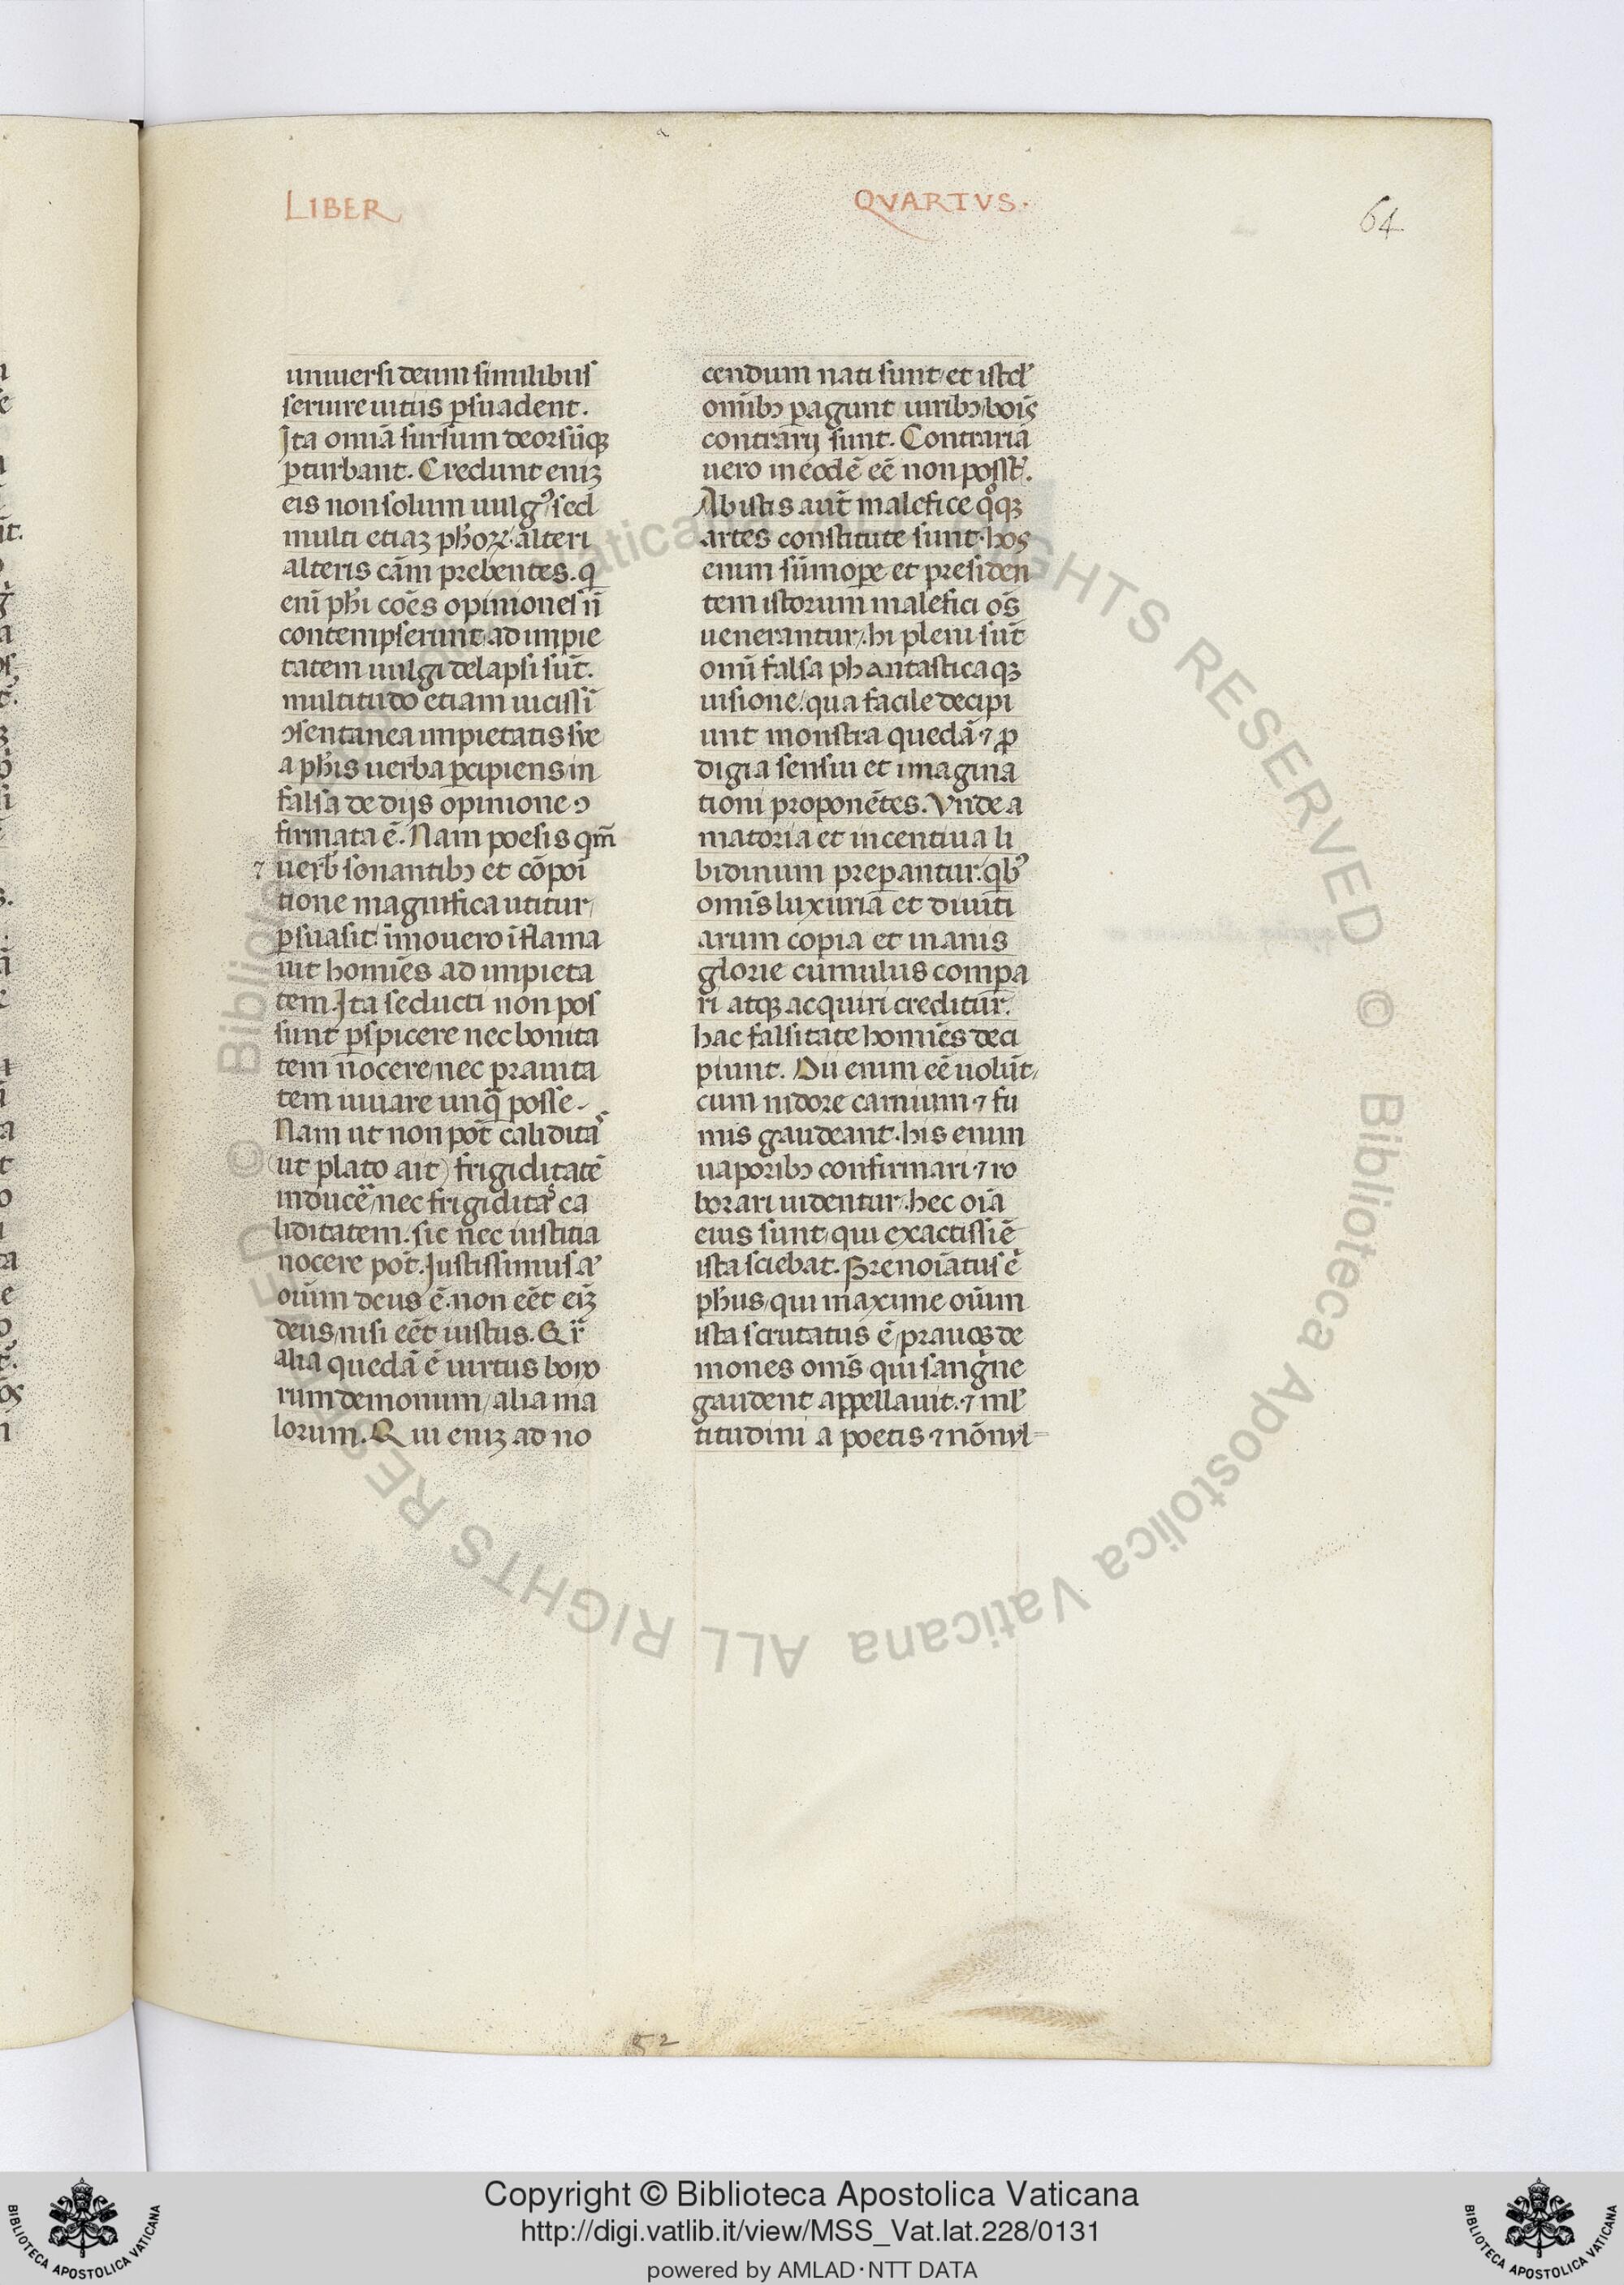 LIBER QVARTVS.
64
uniuersi deum similibus
seruire uitiis ꝑsuadent.
Ita omīa sursum deorsūqꝫ
ꝑturbant. Credunt eniꝫ
eis non solum uulgꝰ/sed
multi etiaꝫ ph̄oꝝ· alteri
alteris cām prebentes. q̄
enī ph̄i coēs opiniones n̄
contempserunt/ad impie
tatem uulgi delapsi sūt.
multitudo etiam uicissī
ↄsentanea impietatis sue
a ph̄is uerba ꝑcipiens in
falsa de dijs opinione ↄ
firmata ē. Nam poesis qm̄
⁊ uerb̄ sonantibꝫ et cōpoi
tione magnifica utitur/
ꝑsuasit imouero īflama
uit homīes ad impieta
tem. Ita seducti non pos
sunt ꝑspicere nec bonita
tem nocere/nec prauita
tem iuuare unq̄ posse-
Nam ut non pōt calidita
(ut plato ait) frigiditatē
inducē/nec frigidita ca
liditatem. sic nec iustitia
nocere pōt. Iustissimus aꝰ
oīum deus ē. non eēt eiꝫ
deus/nisi eēt iustus. Qr̄
alia quedā ē uirtus bono
rum demonum/alia ma
lorum. Qui eniꝫ ad no
cendum nati sunt/et
omībꝫ ꝑagunt uiribꝫ/boīs
contrarij sunt. Contraria
uero in eodē eē non possт̄.
Ab istis aūt malefice qͦqꝫ
artes constitute sunt· hos
enim sūmoꝑe et presiden
tem istorum malefici oēs
uenerantur/. hi pleni sūt
omī falsa phantasticaqꝫ
uisione/. qua facile decipi
unt monstra quedā· ⁊ ꝓ
digia sensui et imagina
tioni proponētes. Vnde a
matoria et incentiua li
bidinum preparantur. qb̄ꝰ
omīs luxuria et diuiti
arum copia et inanis
glorie cumulus compa
ri atqꝫ acquiri creditur.
hac falsitate homīes deci
piunt. Dii enim eē uolūt/
cum nidore carnium ⁊ fu
mis gaudeant. his enim
uaporibꝫ confirmari· ⁊ ro
borari uidentur/. hec oīa
eius sunt/qui exactissiē
ista sciebat. Prenoīatus ē
ph̄us/qui maxime oīum
ista scrutatus ē/prauosqꝫ de
mones omīs qui sangīne
gaudent appellauit. ⁊ ml̄
titudini a poetis ⁊ nōnul=
52
Copyright © Biblioteca Apostolica Vaticana
http://digi.vatlib.it/view/MSS_Vat.lat.228/0131
powered by AMLAD·NTT DATA
BIBLIOTECA APOSTOLICA VATICANA
BIBLIOTECA APOSTOLICA VATICANA
© Biblioteca Apostolica Vaticana ALL RIGHTS RESERVED © Biblioteca Apostolica Vaticana ALL RIGHTS RESERVED